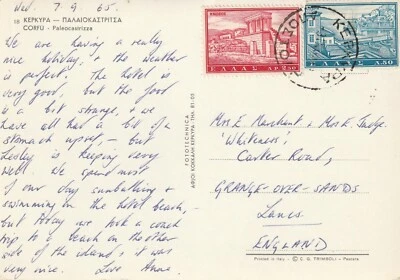 Wed. 7.9.65.
18 ΚΕΡΚΥΡΑ — ΠΑΛΑΙΟΚΑΣΤΡΙΤΣΑ
CORFU - Paleocastrizza
We are having a really
nice holiday, & the weather
is perfect. The hotel is
very good, but the food
is a bit strange, & we
have all had a bit of a
stomach upset, - but
Lesley is keeping very
well. We spend most
of our day sunbathing &
swimming on the hotel beach,-
but today we took a coach
trip to a beach on the other
side of the island, & it was
very nice. Love Anne.
ΦΩΤΟΤΕΧΝΙΚΑ
ΑΦΟΙ ΚΟΚΚΑΛΗ ΚΕΡΚΥΡΑ ΤΗΛ.
ΕΛΛΑΣ
ΕΛΛΑΣ Λ.50
ΚΕΡΚΥΡΑ
Mrs E. Merchant & Mrs K. Judge.
'Whiteness'
Carter Road,
GRANGE-OVER-SANDS
Lancs.
ENGLAND
Printed in Italy - © C. G. TRIMBOLI - Pescara